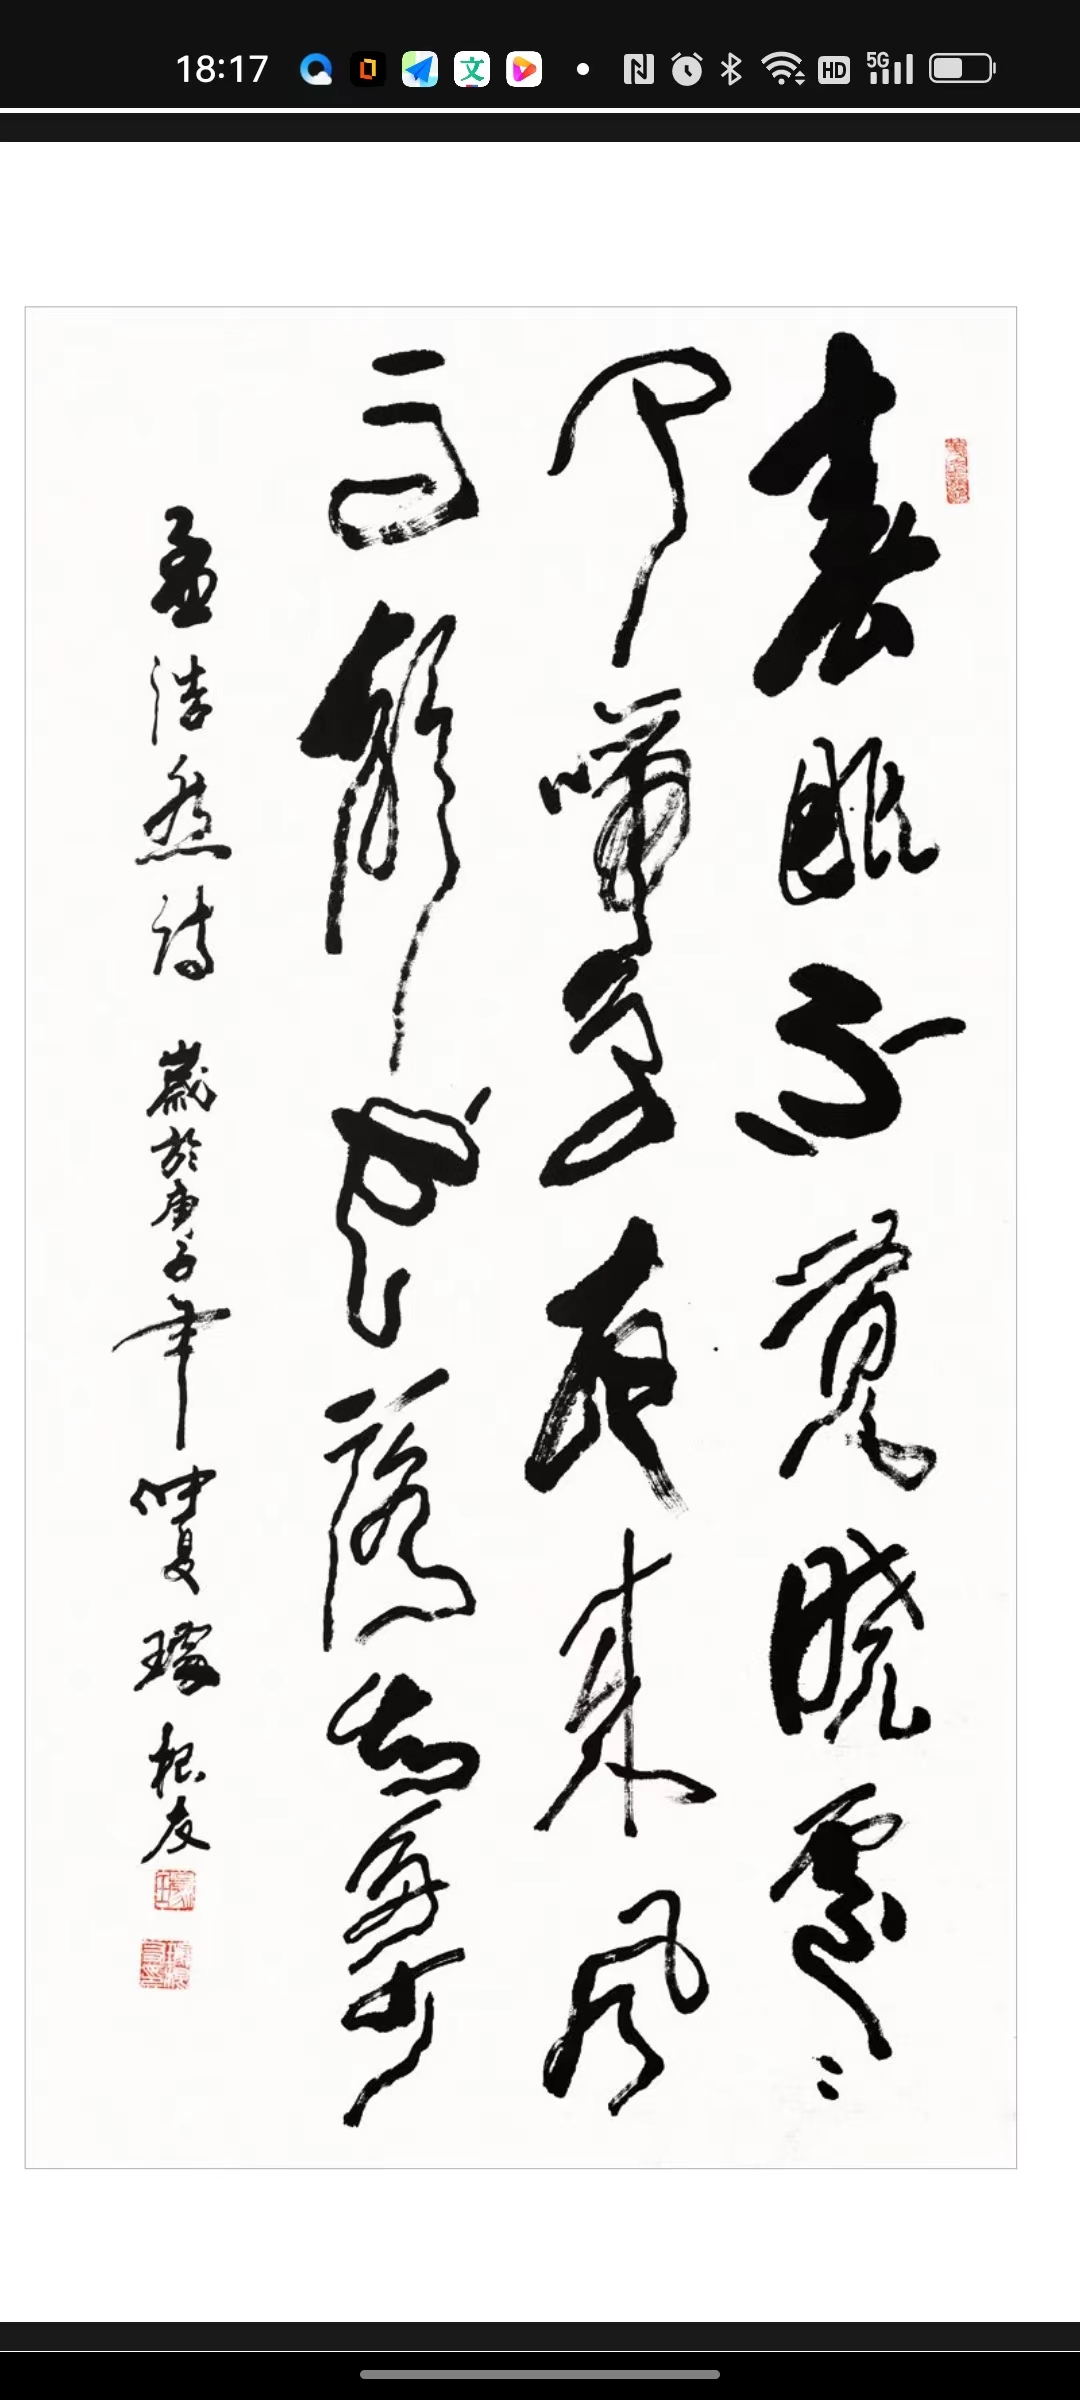 18:17 文 HD 5G
春眠不覺曉處々
聞啼鳥夜來風
雨聲花落知多少
孟浩然詩 歲於庚子年仲夏 根友